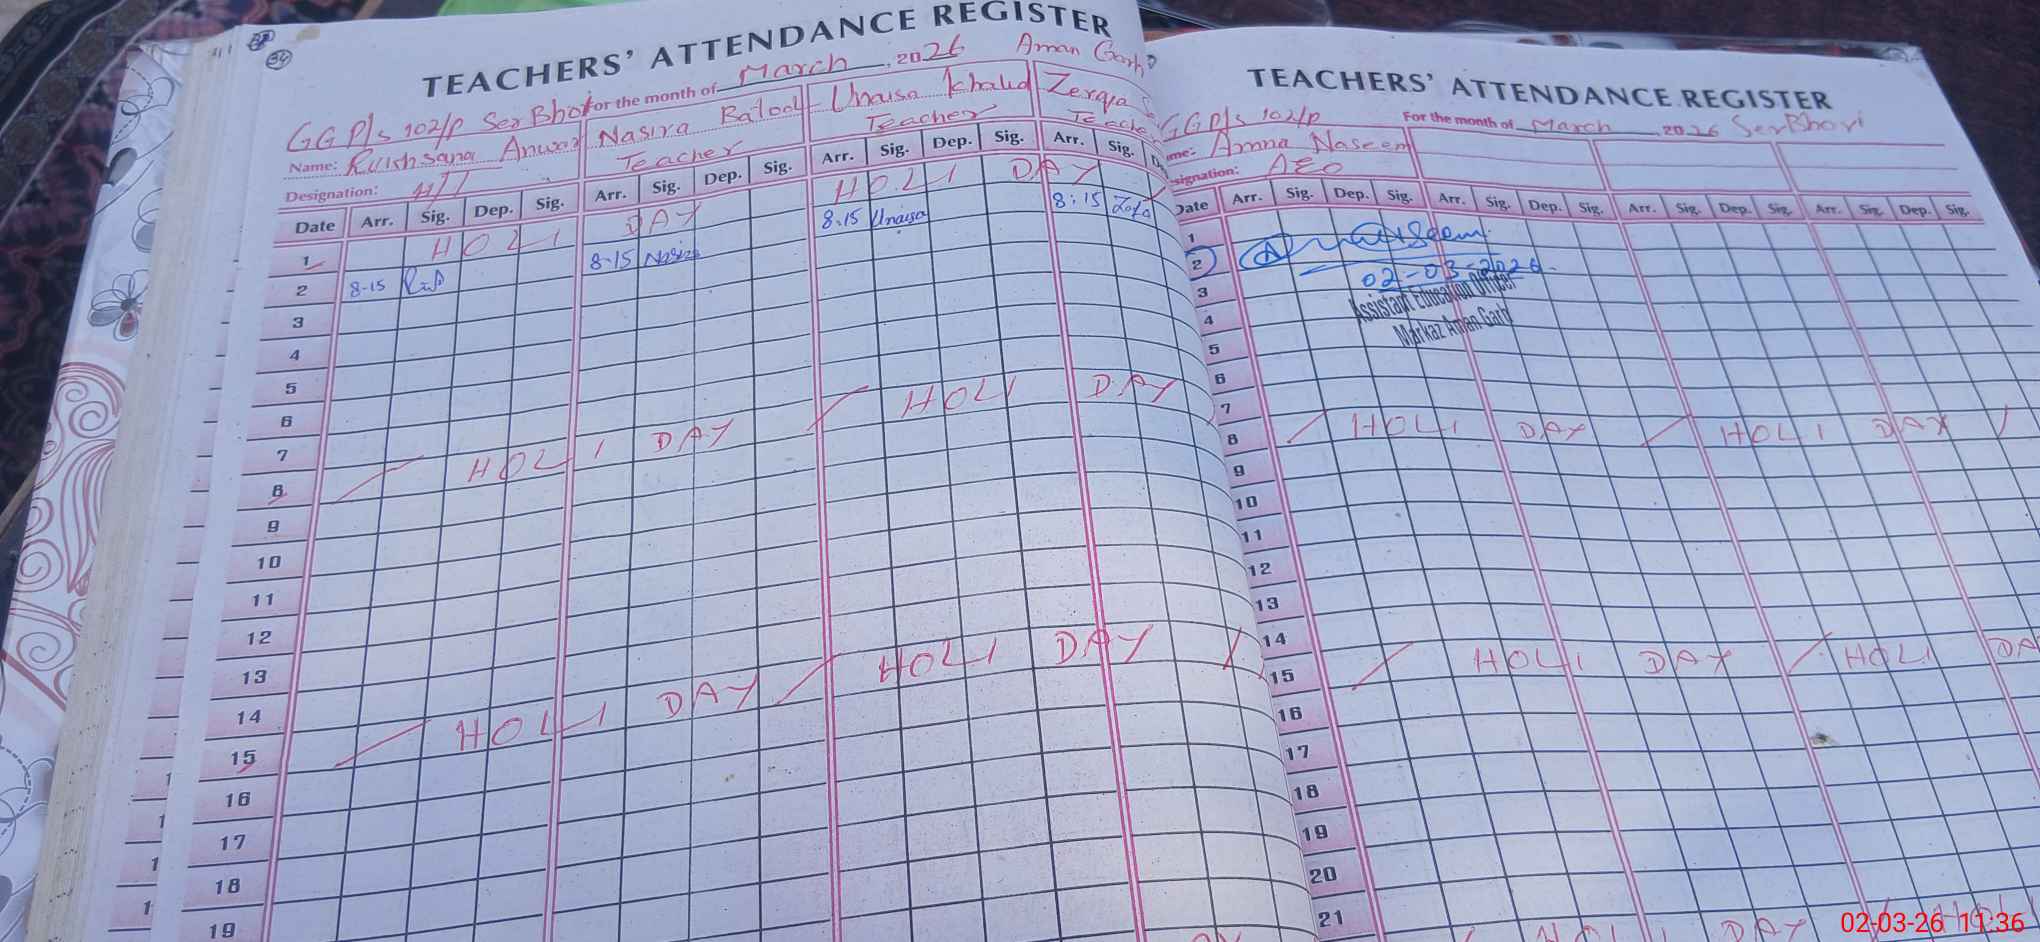 34
TEACHERS' ATTENDANCE REGISTER
GGP/s 102/P SerBhori For the month of March, 2026 Aman Garh
Name: Rukhsana Anwar Nasira Batool Unaisa Khalid Zerqa
Designation: HT Teacher Teacher Teache
Date Arr. Sig. Dep. Sig. Arr. Sig. Dep. Sig. Arr. Sig. Dep. Sig. Arr. Sig.
1 HOLI DAY HOLI DAY
2 8-15 8-15 Nasira 8.15 Unaisa 8:15
3
4
5
6
7
8 HOLI DAY HOLI DAY
9
10
11
12
13
14
15 HOLI DAY HOLI DAY
16
17
18
19
TEACHERS' ATTENDANCE REGISTER
GGP/s 102/P For the month of March, 2026 SerBhori
me: Amna Naseem
signation: AEO
Date Arr. Sig. Dep. Sig. Arr. Sig. Dep. Sig. Arr. Sig. Dep. Sig. Arr. Sig. Dep. Sig.
1
2
02-03-2026
3
Assistant Education Officer
4
Markaz Aman Garh
5
6
7
8 HOLI DAY HOLI DAY
9
10
11
12
13
14
15 HOLI DAY HOLI DA
16
17
18
19
20
21
DAY
02-03-26 11:36